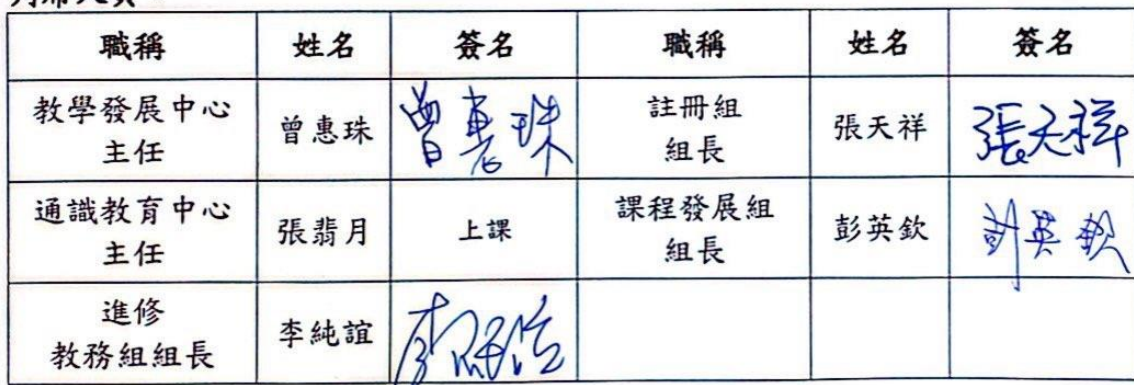 職稱 姓名 簽名 職稱 姓名 簽名
教學發展中心
主任 曾惠珠 曾惠珠 註冊組
組長 張天祥 張天祥
通識教育中心
主任 張翡月 上課 課程發展組
組長 彭英欽 彭英欽
進修
教務組組長 李純誼 李純誼